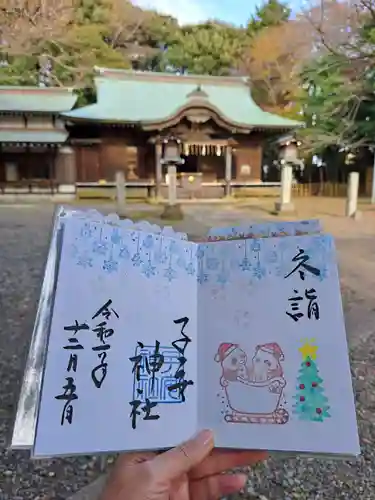 冬詣
子安
神社
令和 年
十二月五日